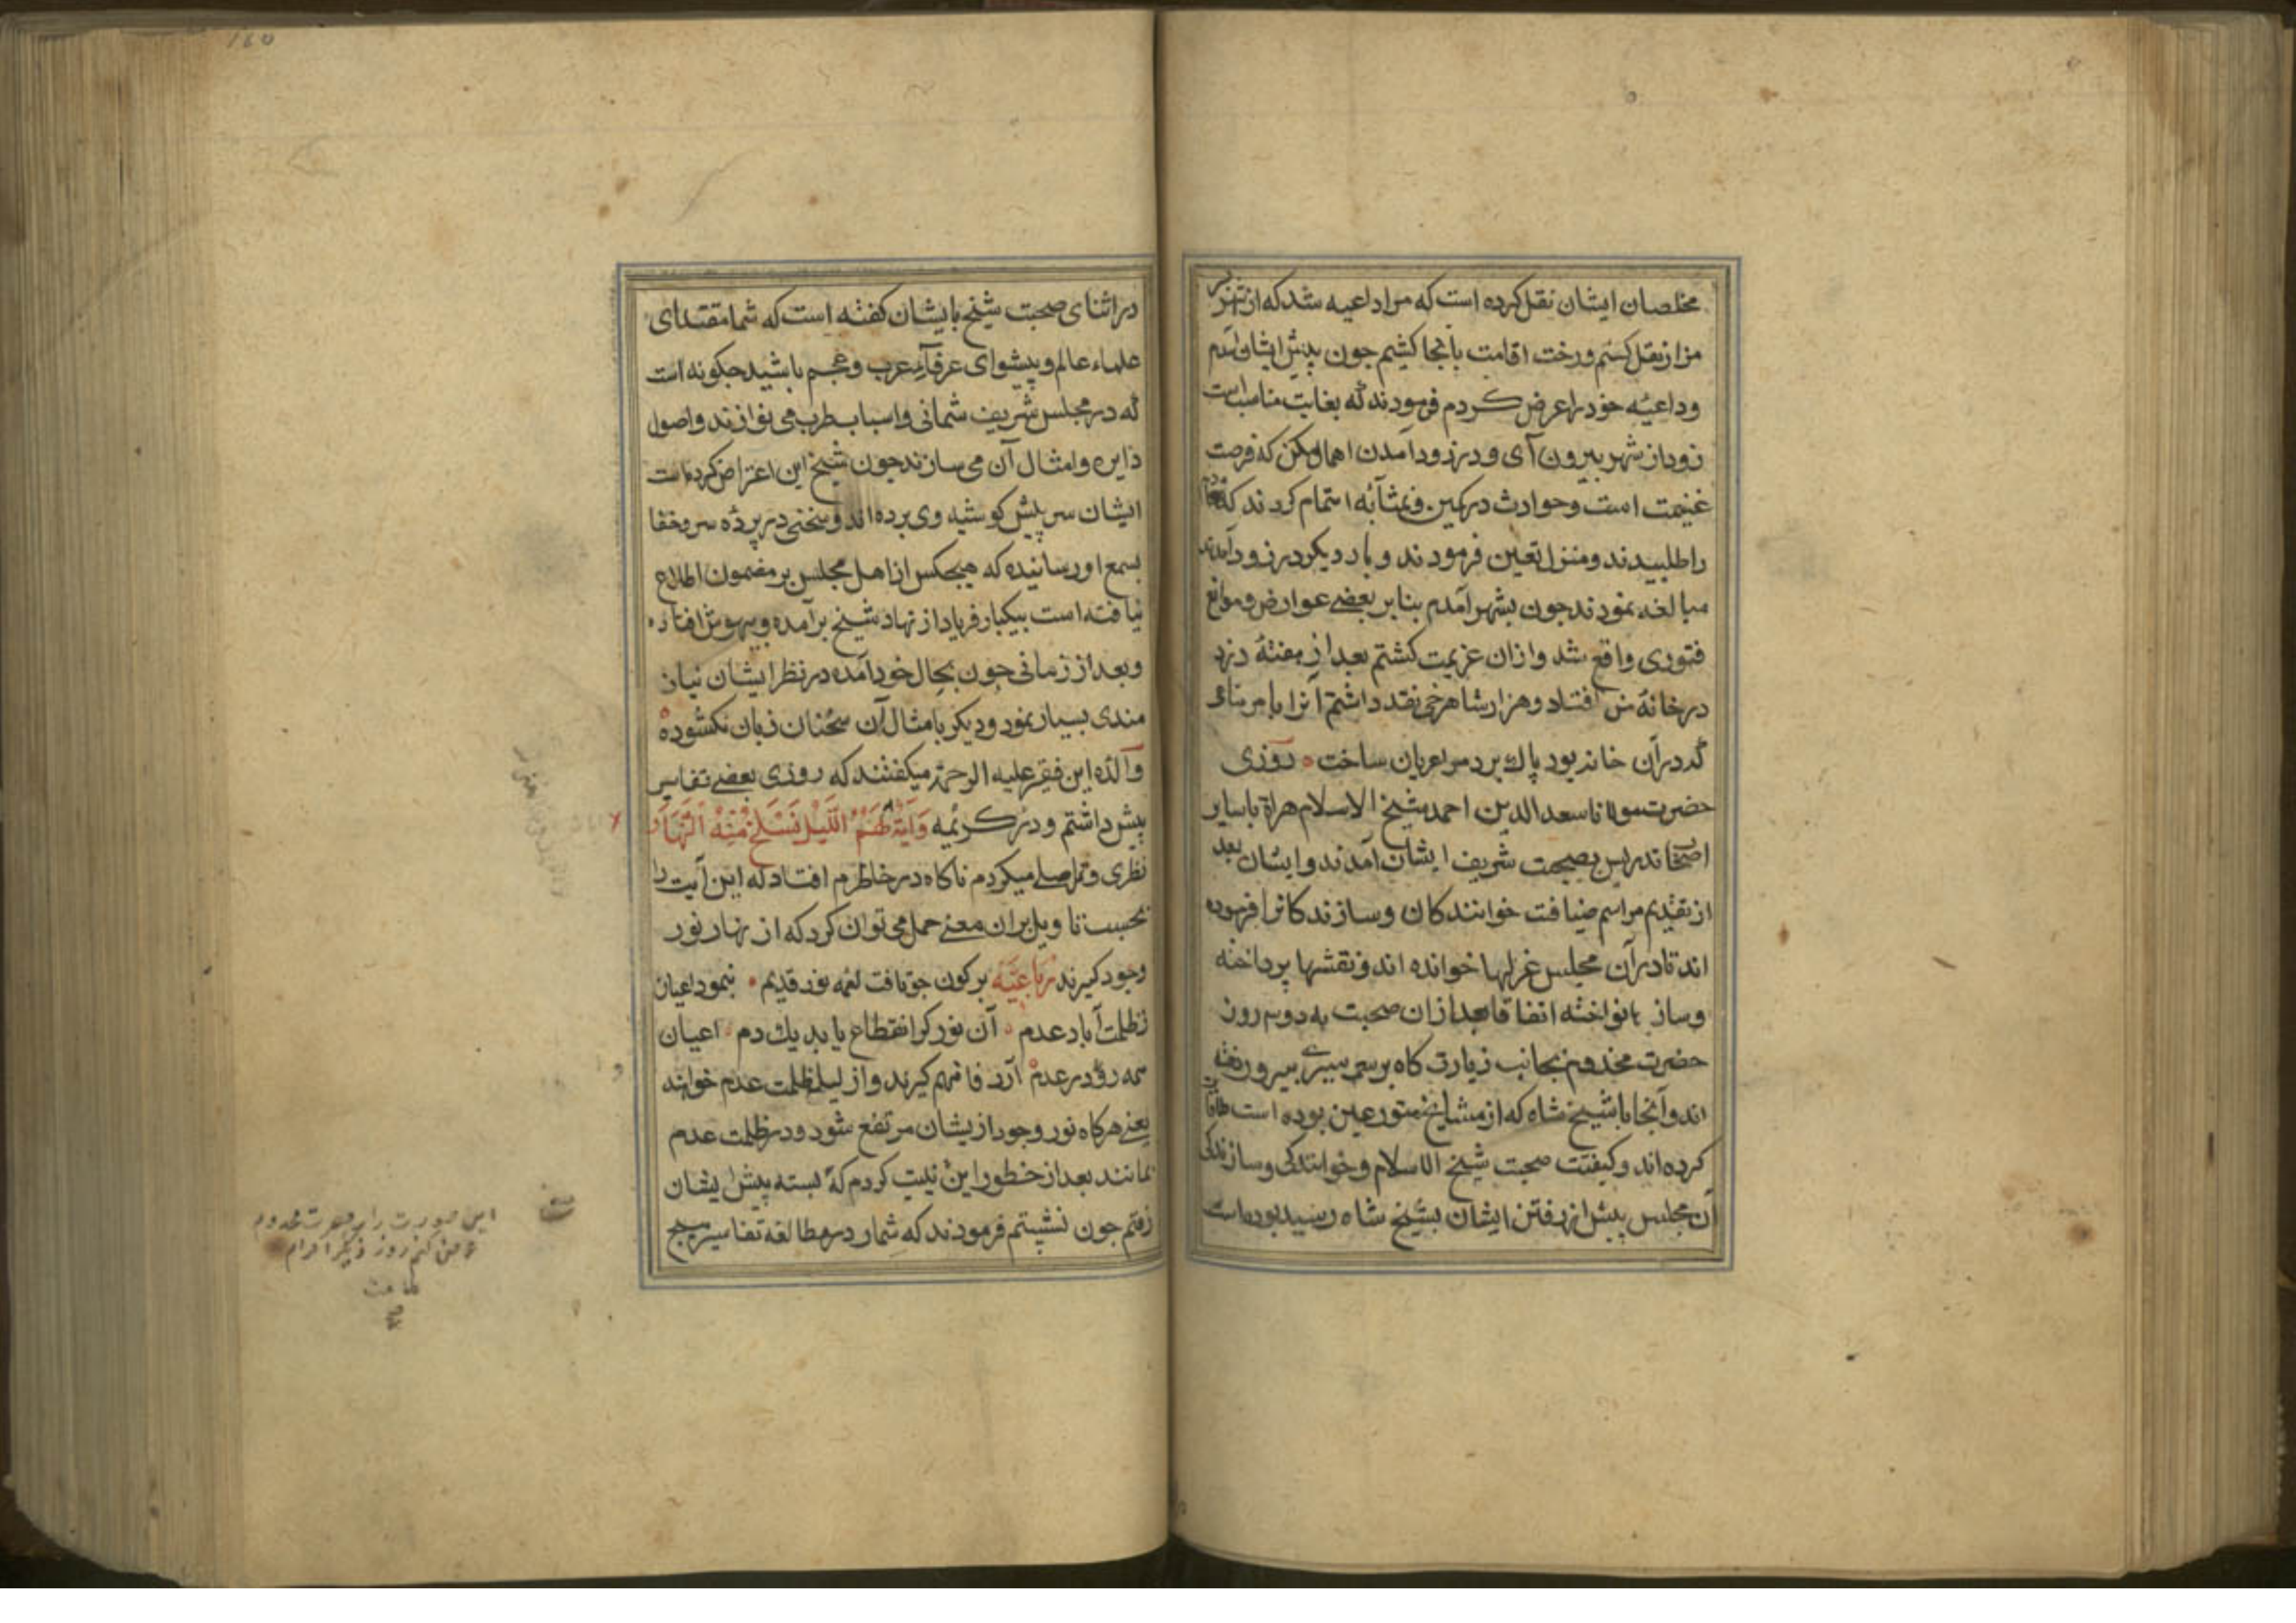 مخلصان ایشان نقل کرده است که مرا داعیه شد که از شهر
مزار نقل کنم ورخت اقامت بآنجا کشم جون پیش ایشان آمدم
وداعیهٔ خود را عرض کردم فرمودند که بغایت مناسب است
زود از شهر بیرون آی و در زود آمدن اهمال مکن که فرصت
غنیمت است وحوادث در کمین وبمثابهٔ اهتمام کردند که
را طلبیدند ومنزل تعین فرمودند و بار دیکر در زود آمدن
مبالغه نمودند جون بشهر آمدم بنابر بعضے عوارض وموانع
فتوری واقع شد وازان عزیمت کشتم بعد از هفتهٔ دزد
در خانهٔ من افتاد وهزار شاهرخی نقد داشتم آنرا با هر متاعی
که در آن خانه بود پاك برد مرا عریان ساخت روزی
حضرت مولانا سعد الدین احمد شیخ الاسلام هراة با سایر
اصحاب تدریس بصحبت شریف ایشان آمدند وایشان بعد
از تقدیم مراسم ضیافت خوانندکان وسازندکانرا فرموده
اند تا در آن مجلس غزلها خوانده اند ونقشها پرداخته
وساز ها نواخته اتفاقا بعد از ان صحبت به دو سه روز
حضرت مخدوم بجانب زیارت کاه برسم سیرے بیرون رفته
اند وآنجا با شیخ شاه که از مشایخ متورعین بوده است ملاقات
کرده اند وکیفیت صحبت شیخ الاسلام وخوانندکی وسازندکی
آن مجلس پیش از رفتن ایشان بشیخ شاه رسید بوده است
در اثنای صحبت شیخ بایشان کفته است که شما مقتدای
علماء عالم وپیشوای عرفاء عرب وعجم باشید جکونه است
که در مجلس شریف شما نی واسباب طرب می نوازند واصول
دایره وامثال آن می سازند جون شیخ این اعتراض کرده است
ایشان سر پیش کوش وی برده اند وسخنی در پردهٔ سر وخفا
بسمع او رسانیده که هیجکس از اهل مجلس بر مضمون اطلاع
نیافته است بیکبار فریاد از نهاد شیخ برآمده وبیهوش افتاده
وبعد از زمانی جون بحال خود آمده در نظر ایشان نیاز
مندی بسیار نمود ودیکر بامثال آن سخنان زبان نکشوده
والدهٔ این فقیر علیه الرحمة میکفتند که روزی بعضے تفاسیر
پیش داشتم ودر کریمه وَآیَةٌ لَهُمُ اللَّیْلُ نَسْلَخُ مِنْهُ النَّهَارَ
نظری وتاملے میکردم ناکاه در خاطرم افتاد که این آیت را
بحسب تاویل بران معنے حمل می توان کرد که از نهار نور
وجود کیرند رباعیّه بر کون جو تافت لمعه نور قدیم بنمود اعیان
ز ظلمت آباد عدم آن نور کر انقطاع یابد یك دم اعیان
همه رو در عدم آرد فافهم کیرند واز لیل ظلمت عدم خواهند
یعنے هرکاه نور وجود از یشان مرتفع شود ودر ظلمت عدم
بمانند بعد از خطور این نیت کردم که بسته پیش ایشان
رفتم جون نشستم فرمودند که شما در مطالعه تفاسیر هیج
این صورت را بر حضرت مخدوم
عرض کنم روز دیکر احرام